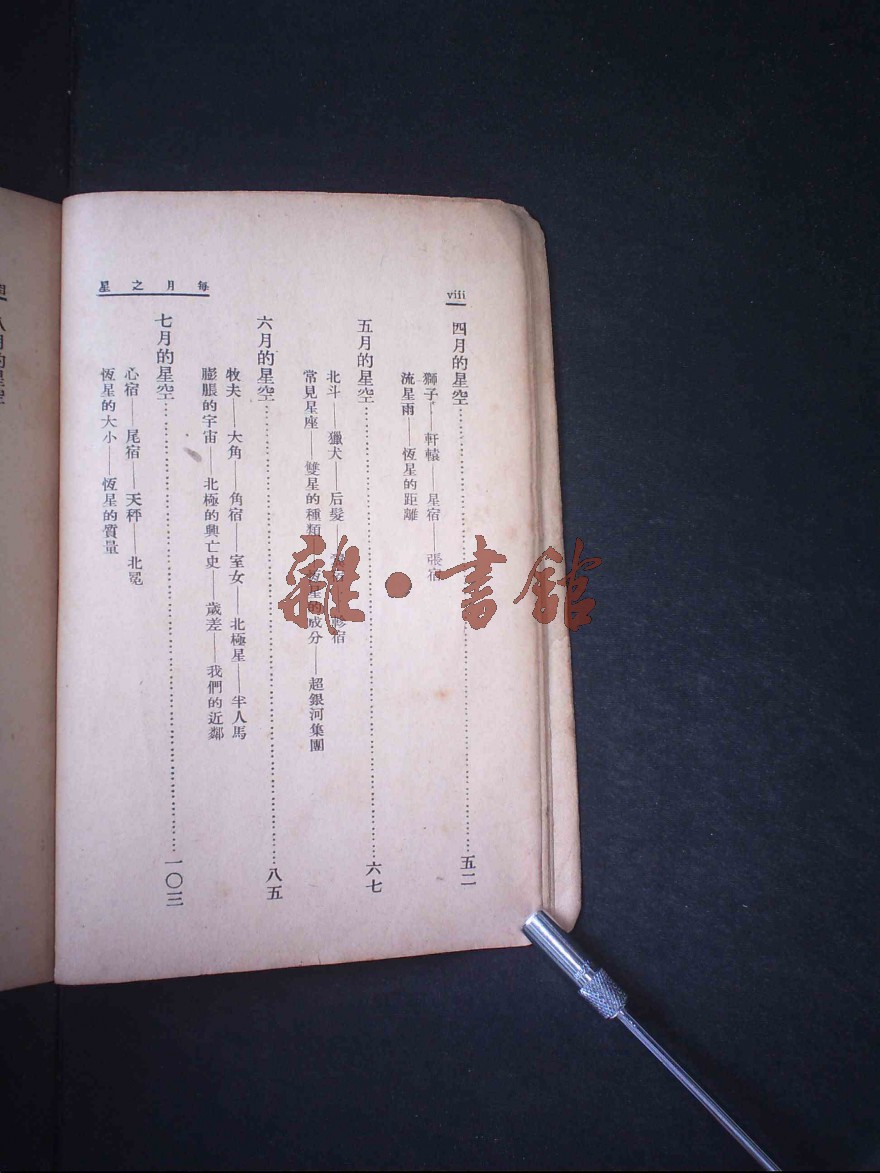 viii
每月之星
四月的星空……五二
獅子——軒轅——星宿——張宿
流星雨——恆星的距離
五月的星空……六七
北斗——獵犬——后髮——軫宿
常見星座——雙星的種類——恆星的成分——超銀河集團
六月的星空……八五
牧夫——大角——角宿——室女——北極星——半人馬
膨脹的宇宙——北極的興亡史——歲差——我們的近鄰
七月的星空……一〇三
心宿——尾宿——天秤——北冕
恆星的大小——恆星的質量
八月的星空
雜·書館